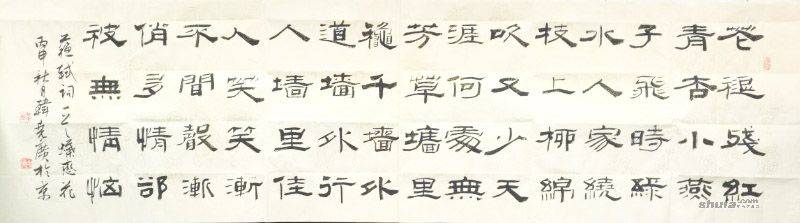 花褪殘紅
青杏小燕
子飛時綠
水人家繞
枝上柳綿
吹又少天
涯何處無
芳草墻里
龝千墻外
道墻外行
人墻里佳
人笑笑漸
不聞聲漸
俏多情卻
被無情惱
蘇軾詞一首蝶戀花
丙申秋月韓堯廣於京
shufa.com